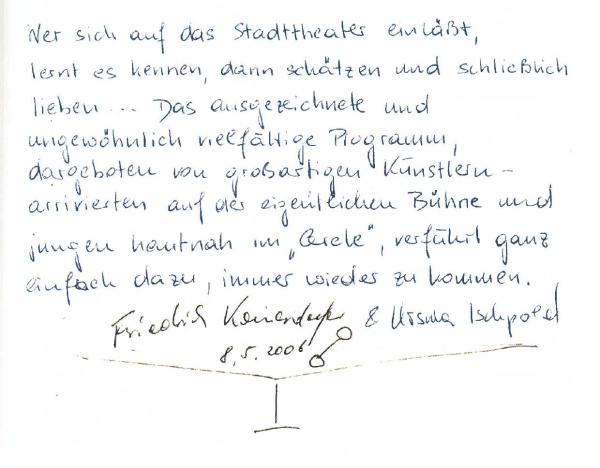 Wer sich auf das Stadttheater einläßt,
lernt es kennen, dann schätzen und schließlich
lieben... Das ausgezeichnete und
ungewöhnlich vielfältige Programm,
dargeboten von großartigen Künstlern –
arrivierten auf der eigentlichen Bühne und
jungen hautnah im „Cercle“, verführt ganz
einfach dazu, immer wieder zu kommen.
Friedrich & Ursula
8.5.2006